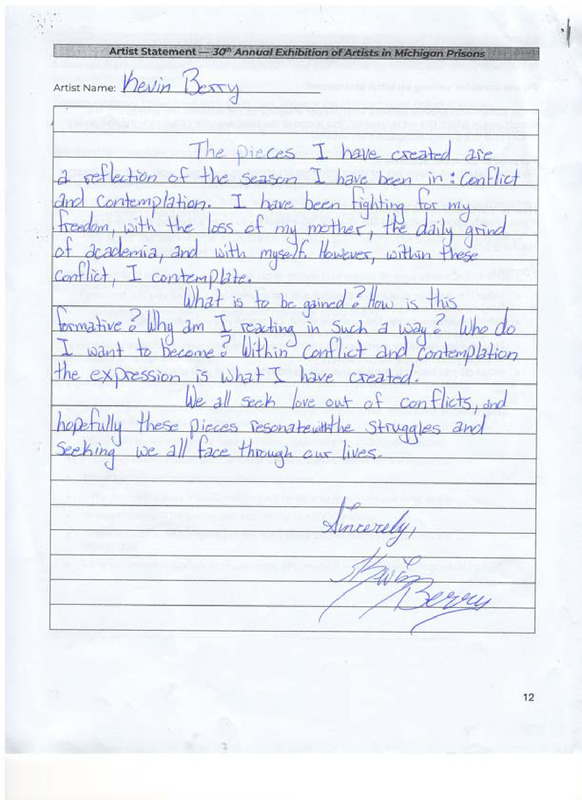 Artist Statement — 30th Annual Exhibition of Artists in Michigan Prisons
Artist Name: Kevin Berry
The pieces I have created are
a reflection of the season I have been in: Conflict
and Contemplation. I have been fighting for my
freedom, with the loss of my mother, the daily grind
of academia, and with myself. However, within these
conflict, I contemplate.
What is to be gained? How is this
formative? Why am I reacting in such a way? Who do
I want to become? Within Conflict and Contemplation
the expression is what I have created.
We all seek love out of conflicts, and
hopefully these pieces resonate with the struggles and
seeking we all face through our lives.
Sincerely,
Kevin
Berry
12